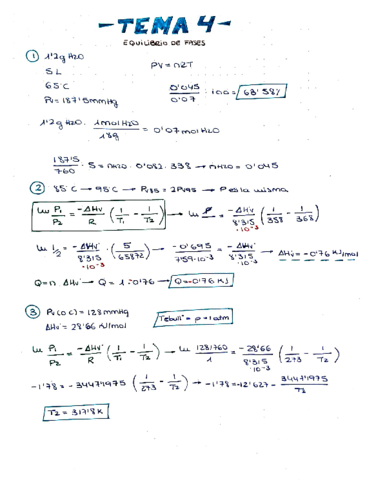 - TEMA 4 -
EQUILIBRIO DE FASES
① 1'2g H2O
5L
65°C
Pv = 187'5mmHg
PV = nRT
0'045 / 0'07 · 100 = 63'58%
1'2g H2O · 1mol H2O / 18g = 0'07mol H2O
187'5 / 760 · 5 = nH2O · 0'082 · 338 → nH2O = 0'045
② 85°C → 95°C → Pv85 = 2Pv95 → P es la misma
ln P1/P2 = -ΔHv/R (1/T1 - 1/T2) → ln = -ΔHv/8'315·10⁻³ (1/358 - 1/368)
ln 1/2 = -ΔHv/8'315·10⁻³ · (5/65872) → -0'695/7'59·10⁻³ = -ΔHv/8'315·10⁻³ → ΔHv = -0'76 KJ/mol
Q = n ΔHv → Q = 1·-0'76 → Q = -0'76 KJ
③ Pv(0°C) = 128mmHg
ΔHv = 28'66 KJ/mol
Tebull → P = 1 atm
ln P1/P2 = -ΔHv/R (1/T1 - 1/T2) → ln 128/760 / 1 = -28'66/8'315·10⁻³ (1/273 - 1/T2)
-1'78 = -3447'1975 (1/273 - 1/T2) → -1'78 = -12'627 - 3447'1975/T2
T2 = 317'8 K